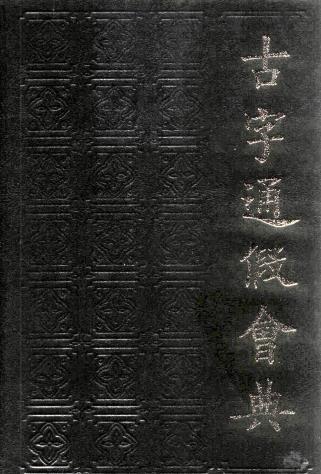 古字通假會典